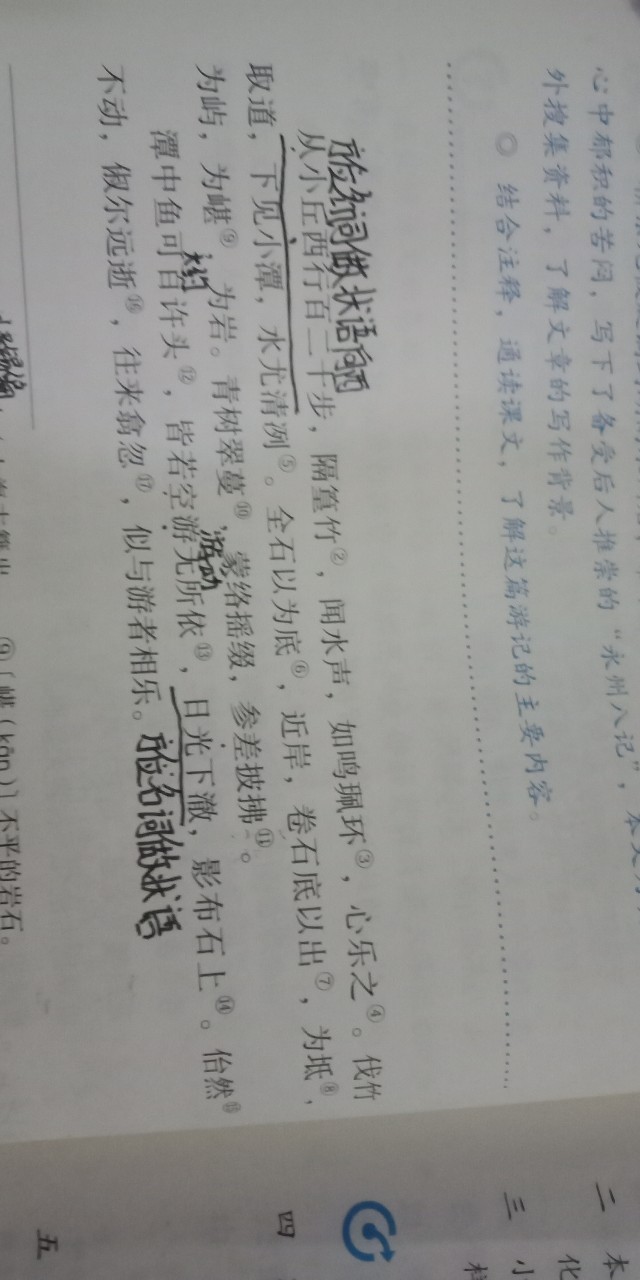 心中郁积的苦闷，写下了备受后人推崇的“永州八记”，本文
外搜集资料，了解文章的写作背景。
◎ 结合注释，通读课文，了解这篇游记的主要内容。
方位名词做状语 向西
从小丘西行百二十步，隔篁竹②，闻水声，如鸣珮环③，心乐之④。伐竹
取道，下见小潭，水尤清冽⑤。全石以为底⑥，近岸，卷石底以出⑦，为坻⑧，
为屿，为嵁⑨，为岩。青树翠蔓⑩，蒙络摇缀，参差披拂⑪。
大约
游动
潭中鱼可百许头⑫，皆若空游无所依⑬，日光下澈，影布石上⑭。佁然⑮
不动，俶尔远逝⑯，往来翕忽⑰，似与游者相乐。
方位名词做状语
⑨〔嵁（kān）〕不平的岩石。
二 本
化
三 小
四
五